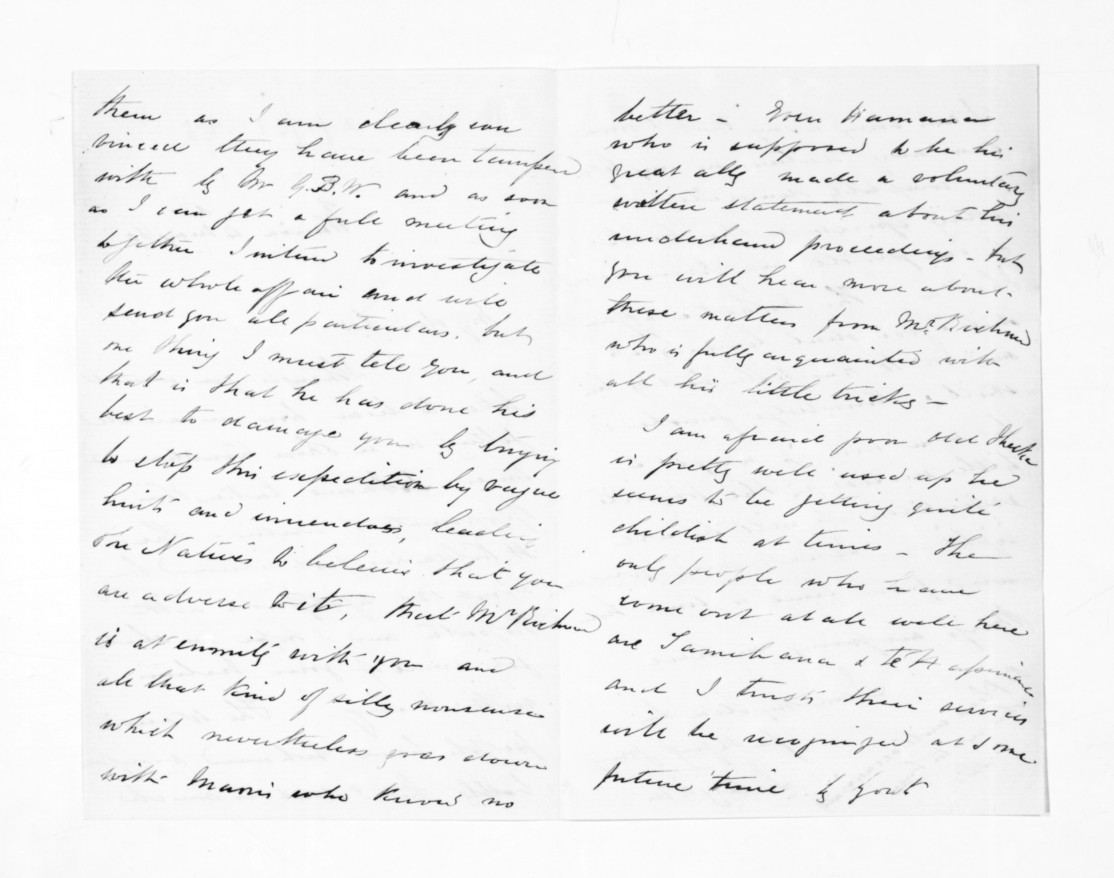 them as I am clearly con
vinced they have been tampered
with by Mr G.B.W. and as soon
as I can get a full meeting
together I intend to investigate
the whole affair and will
send you all particulars. but
one thing I must tell you, and
that is that he has done his
best to damage you by trying
to stop this expedition by vague
hints and innendoes, leading
the Natives to beleive that you
are adverse to it, that Mr Richmond
is at enmity with you and
all that kind of silly nonsense
which nevertheless goes down
with Maoris who know no
better - Even Hamana
who is supposed to be his
great ally made a voluntary
written statement about his
underhand proceedings - but
you will hear more about
these matters from Mr. Richmond
who is fully acquainted with
all his little tricks -
I am afraid poor old Ihaka
is pretty well used up he
seems to be getting quite
childish at times - The
only people who have
come out at all well here
are Tamihana & te
and I trust their services
will be recognized at some
future time by Govt